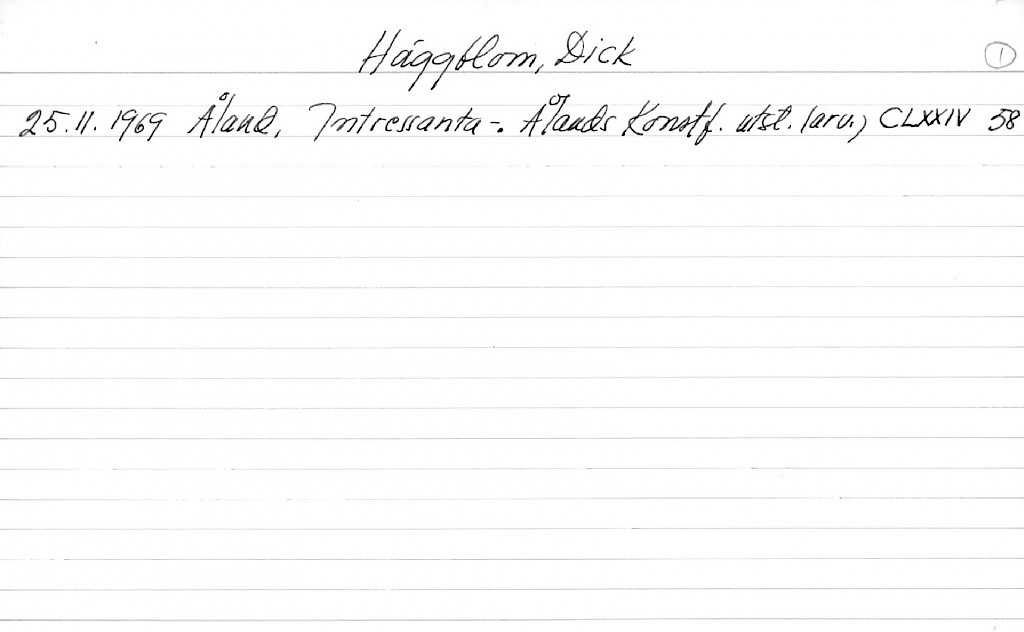 Häggblom, Dick 1
25.11.1969 Åland, Intressanta -. Ålands Konstf. utst. (arv.) CLXXIV 58